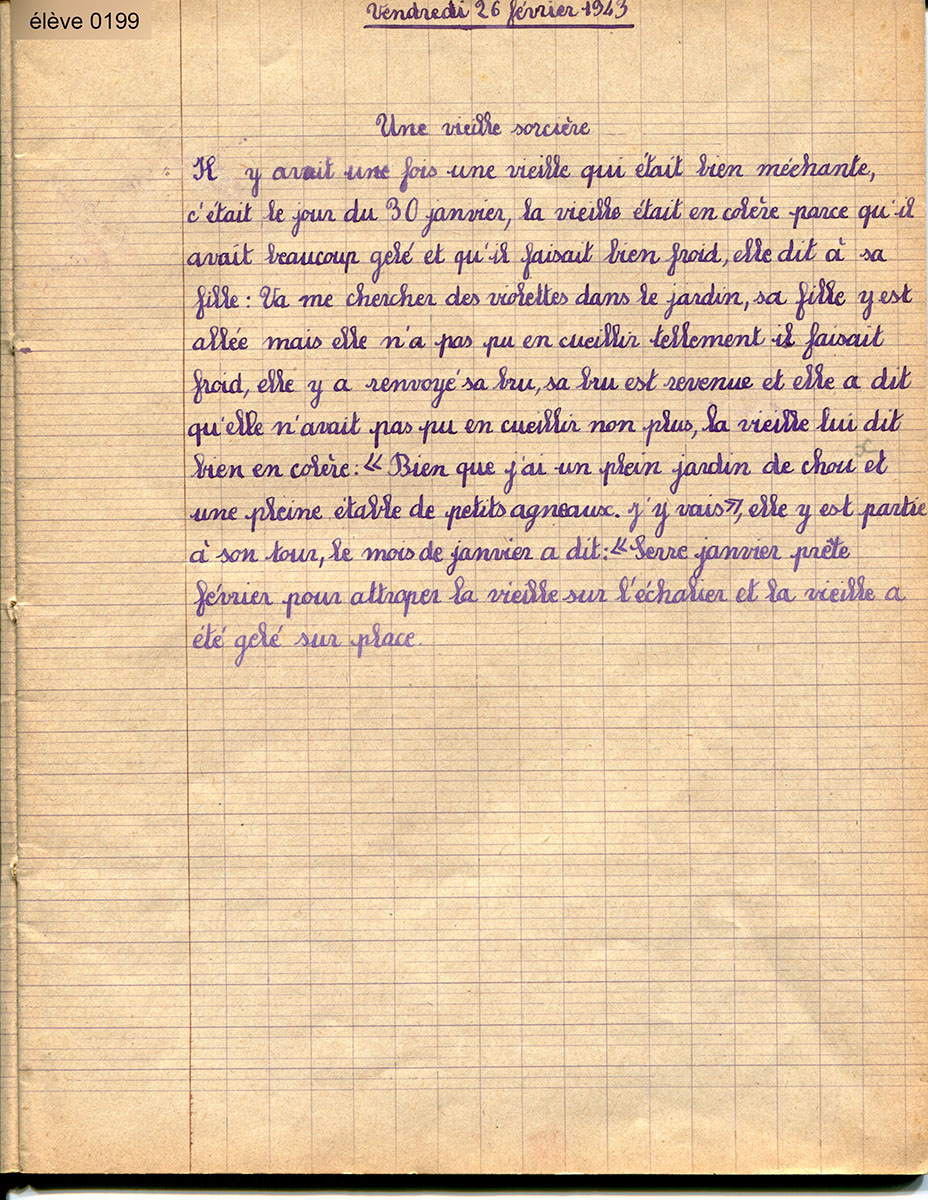 élève 0199
Vendredi 26 février 1943
Une vieille sorcière
Il y avait une fois une vieille qui était bien méchante,
c'était le jour du 30 janvier, la vieille était en colère parce qu'il
avait beaucoup gelé et qu'il faisait bien froid, elle dit à sa
fille : Va me chercher des violettes dans le jardin, sa fille y est
allée mais elle n'a pas pu en cueillir tellement il faisait
froid, elle y a renvoyé sa bru, sa bru est revenue et elle a dit
qu'elle n'avait pas pu en cueillir non plus, la vieille lui dit
bien en colère : « Bien que j'ai un plein jardin de choux et
une pleine étable de petits agneaux. j'y vais », elle y est partie
à son tour, le mois de janvier a dit : « Serre janvier prête
février pour attraper la vieille sur l'échalier et la vieille a
été gelé sur place.